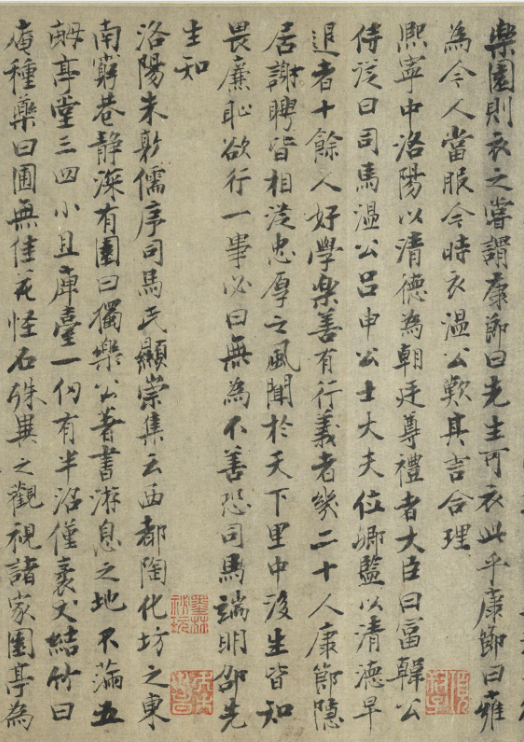 樂園則衣之嘗謂康節曰先生可衣此乎康節曰雍
為今人當服今時衣溫公歎其言合理
熙寧中洛陽以清德為朝廷尊禮者大臣曰富韓公
侍從曰司馬溫公呂申公士大夫位卿監以清德早
退者十餘人好學樂善有行義者幾二十人康節隱
居謝聘皆相從忠厚之風聞於天下里中後生皆知
畏廉恥欲行一事必曰無為不善恐司馬端明邵先
生知
洛陽朱敦儒序司馬氏顯崇集云西都陶化坊之東
南窮巷靜深有園曰獨樂公著書游息之地不淪五
畝亭堂三四小且庳臺一仞有半沼僅袤丈結竹曰
廬種藥曰圃無佳花怪石殊異之觀視諸家園亭為